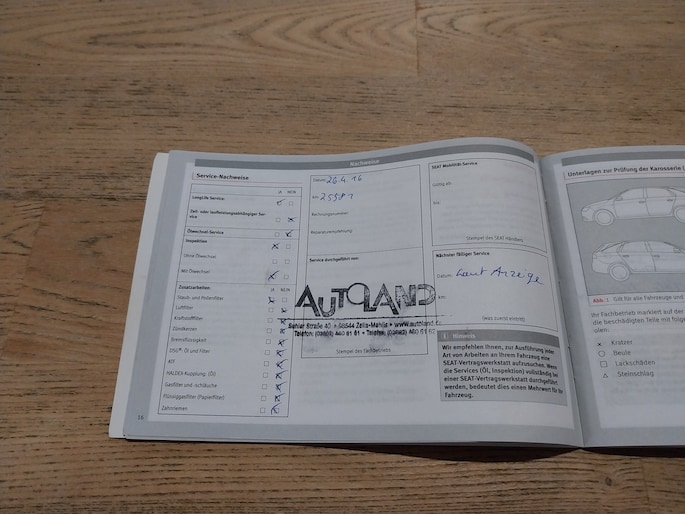 Nachweise
Service-Nachweise
JA NEIN
LongLife Service:
Zeit- oder laufleistungsabhängiger Ser-
vice
Ölwechsel-Service
Inspektion
Ohne Ölwechsel
Mit Ölwechsel
Zusatzarbeiten:
JA NEIN
Staub- und Pollenfilter
Luftfilter
Kraftstofffilter
Zündkerzen
Bremsflüssigkeit
DSG® Öl und Filter
ATF
HALDEX-Kupplung (Öl)
Gasfilter und -schläuche
Flüssiggasfilter (Papierfilter)
Zahnriemen
16
Datum: 26.4.16
km: 25581
Rechnungsnummer:
Reparaturempfehlung:
Service durchgeführt von:
AUTOLAND
Suhler Straße 40 • 98544 Zella-Mehlis • www.autoland
Telefon:
Stempel des Fachbetriebs
SEAT Mobilitäts-Service
Gültig ab:
bis:
Stempel des SEAT Händlers
Nächster fälliger Service
Datum: Laut Anzeige
km:
(was zuerst eintritt)
i Hinweis
Wir empfehlen Ihnen, zur Ausführung jeder
Art von Arbeiten an Ihrem Fahrzeug eine
SEAT-Vertragswerkstatt aufzusuchen. Wenn
die Services (Öl, Inspektion) vollständig bei
einer SEAT-Vertragswerkstatt durchgeführt
werden, bedeutet dies einen Mehrwert für Ihr
Fahrzeug.
Unterlagen zur Prüfung der Karosserie
Abb. 1 Gilt für alle Fahrzeuge und
Ihr Fachbetrieb markiert auf der
die beschädigten Teile mit folge
olen:
Kratzer
Beule
Lackschäden
Steinschlag